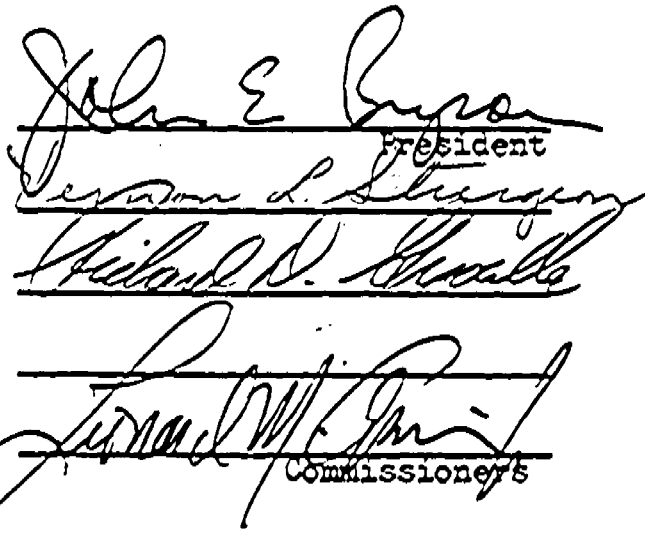 John E Bryson
President
Vernon L. Sturgeon
Richard D. Gravelle
Leonard M.
Commissioners